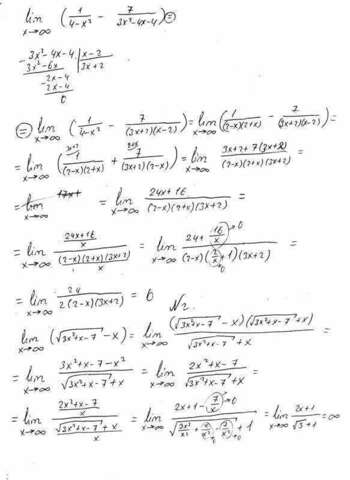 lim x→∞ (1/(4-x²) - 7/(3x²-4x-4)) =
-3x²-4x-4 | x-2
3x²-6x | 3x+2
2x-4
-2x-4
0
= lim x→∞ (1/(4-x²) - 7/((3x+2)(x-2))) = lim x→∞ (1/((2-x)(2+x)) - 7/((3x+2)(x-2))) =
= lim x→∞ (1/((2-x)(2+x)) + 7/((3x+2)(2-x))) = lim x→∞ (3x+2+7(3x+2))/((2-x)(2+x)(3x+2)) =
= lim x→∞ = lim x→∞ (24x+16)/((2-x)(2+x)(3x+2)) =
= lim x→∞ ((24x+16)/x)/((2-x)(2+x)(3x+2)/x) = lim x→∞ (24+16/x→0)/((2-x)(2/x→0+1)(3x+2)) =
= lim x→∞ 24/(2(2-x)(3x+2)) = 0 N2.
lim x→∞ (√(3x²+x-7) - x) = lim x→∞ ((√(3x²+x-7) - x)(√(3x²+x-7) + x))/(√(3x²+x-7) + x) =
= lim x→∞ (3x²+x-7-x²)/(√(3x²+x-7) + x) = lim x→∞ (2x²+x-7)/(√(3x²+x-7) + x) =
= lim x→∞ ((2x²+x-7)/x)/((√(3x²+x-7) + x)/x) = lim x→∞ (2x+1-7/x→0)/(√(3x²/x²+x/x²→0-7/x²→0)+1) = lim x→∞ (2x+1)/(√3+1) = ∞